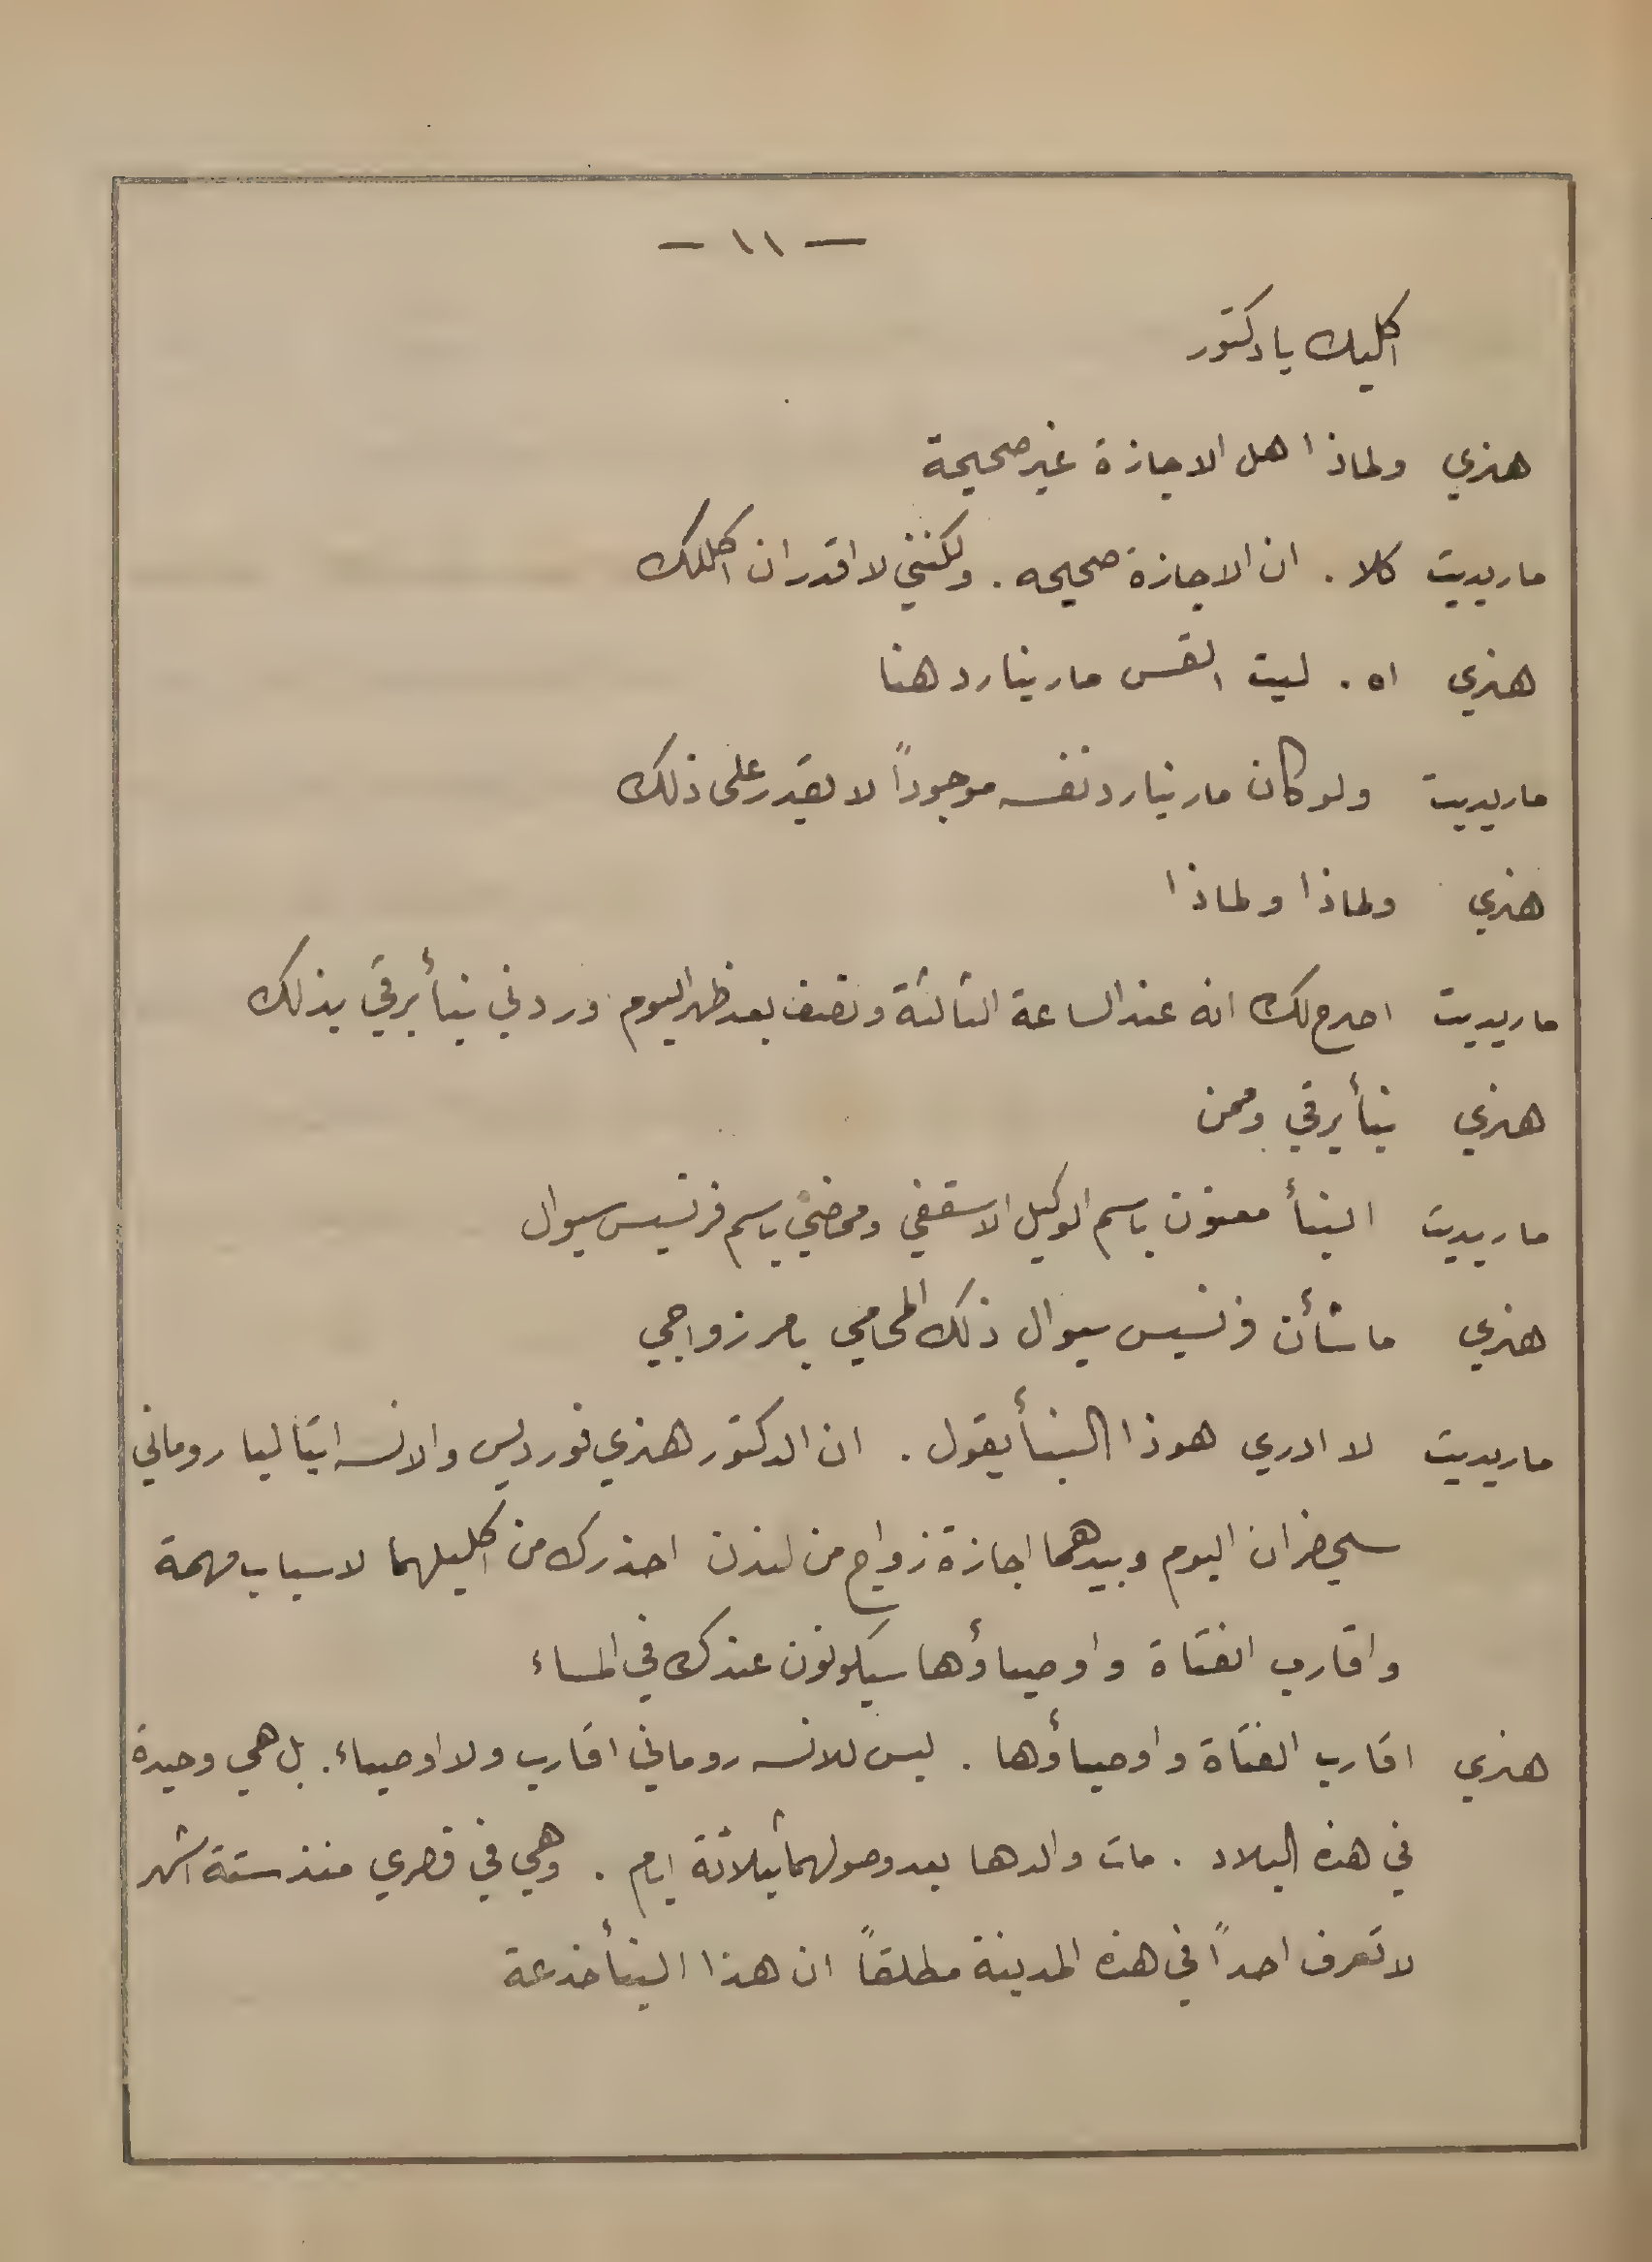 — ١١ —
اكليك يا دكتور
هنري ولماذا هل الاجازة غير صحيحة
ماريديت كلا . ان الاجازة صحيحه . ولكنني لا اقدر ان اكللك
هنري اه . ليت القس مارينارد هنا
ماريديت ولو كان مارينارد نفسه موجوداً لا يقدر على ذلك
هنري ولماذا ولماذا
ماريديت اصرح لك انه عند الساعة الثالثة ونصف بعد ظهر اليوم وردني نبأ برقي بذلك
هنري نبأ برقي وممن
ماريديت النبأ معنون باسم الوكيل الاسقفي وممضي باسم فرنسيس سيوال
هنري ما شأن فرنسيس سيوال ذلك المحامي بامر زواجي
ماريديت لا ادري هوذا النبأ يقول . ان الدكتور هنري فورديس والانسه ايتاليا روماني
سيحضران اليوم وبيدهما اجازة زواج من لندن احذرك من اكليلهما لاسباب مهمة
واقارب الفتاة واوصياؤها سيكونون عندك في المساء
هنري اقارب الفتاة واوصياؤها . ليس للانسه روماني اقارب ولا اوصياء . بل هي وحيدة
في هذه البلاد . مات والدها بعد وصولهما بثلاثة ايام . وهي في قصري منذ ستة اشهر
لا تعرف احداً في هذه المدينة مطلقاً ان هذا النبأ خدعة